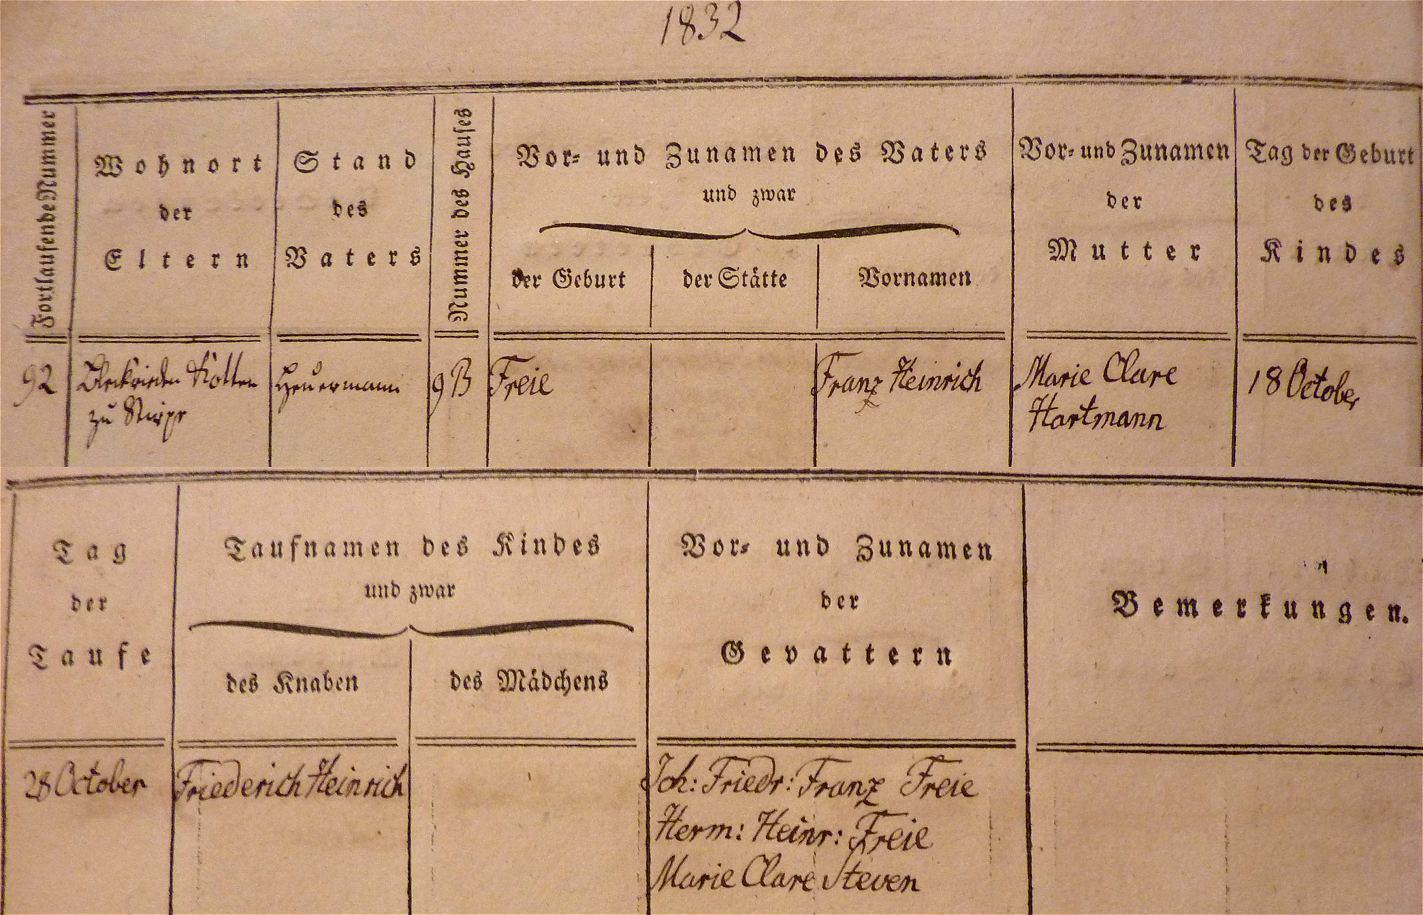 1832
Fortlaufende Nummer
Wohnort
der
Eltern
Stand
des
Vaters
Nummer des Hauses
Vor- und Zunamen des Vaters
und zwar
der Geburt
der Stätte
Vornamen
Vor- und Zunamen
der
Mutter
Tag der Geburt
des
Kindes
92
Kotten
zu
Heuermann
9B
Freie
Franz Heinrich
Marie Clare
Hartmann
18 October
Tag
der
Taufe
Taufnamen des Kindes
und zwar
des Knaben
des Mädchens
Vor- und Zunamen
der
Gevattern
Bemerkungen.
28 October
Friederich Heinrich
Joh: Friedr: Franz Freie
Herm: Heinr: Freie
Marie Clare Steven